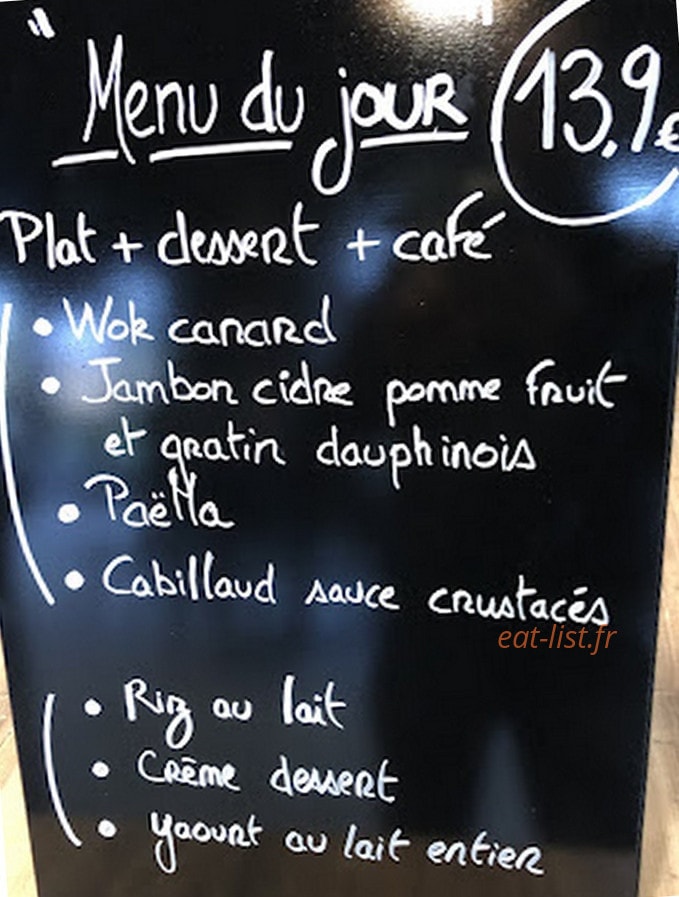 " Menu du jour 13,9€
Plat + dessert + café
• Wok canard
• Jambon cidre pomme fruit
et gratin dauphinois
• Paëlla
• Cabillaud sauce crustacés
eat-list.fr
• Riz au lait
• Crème dessert
• yaourt au lait entier